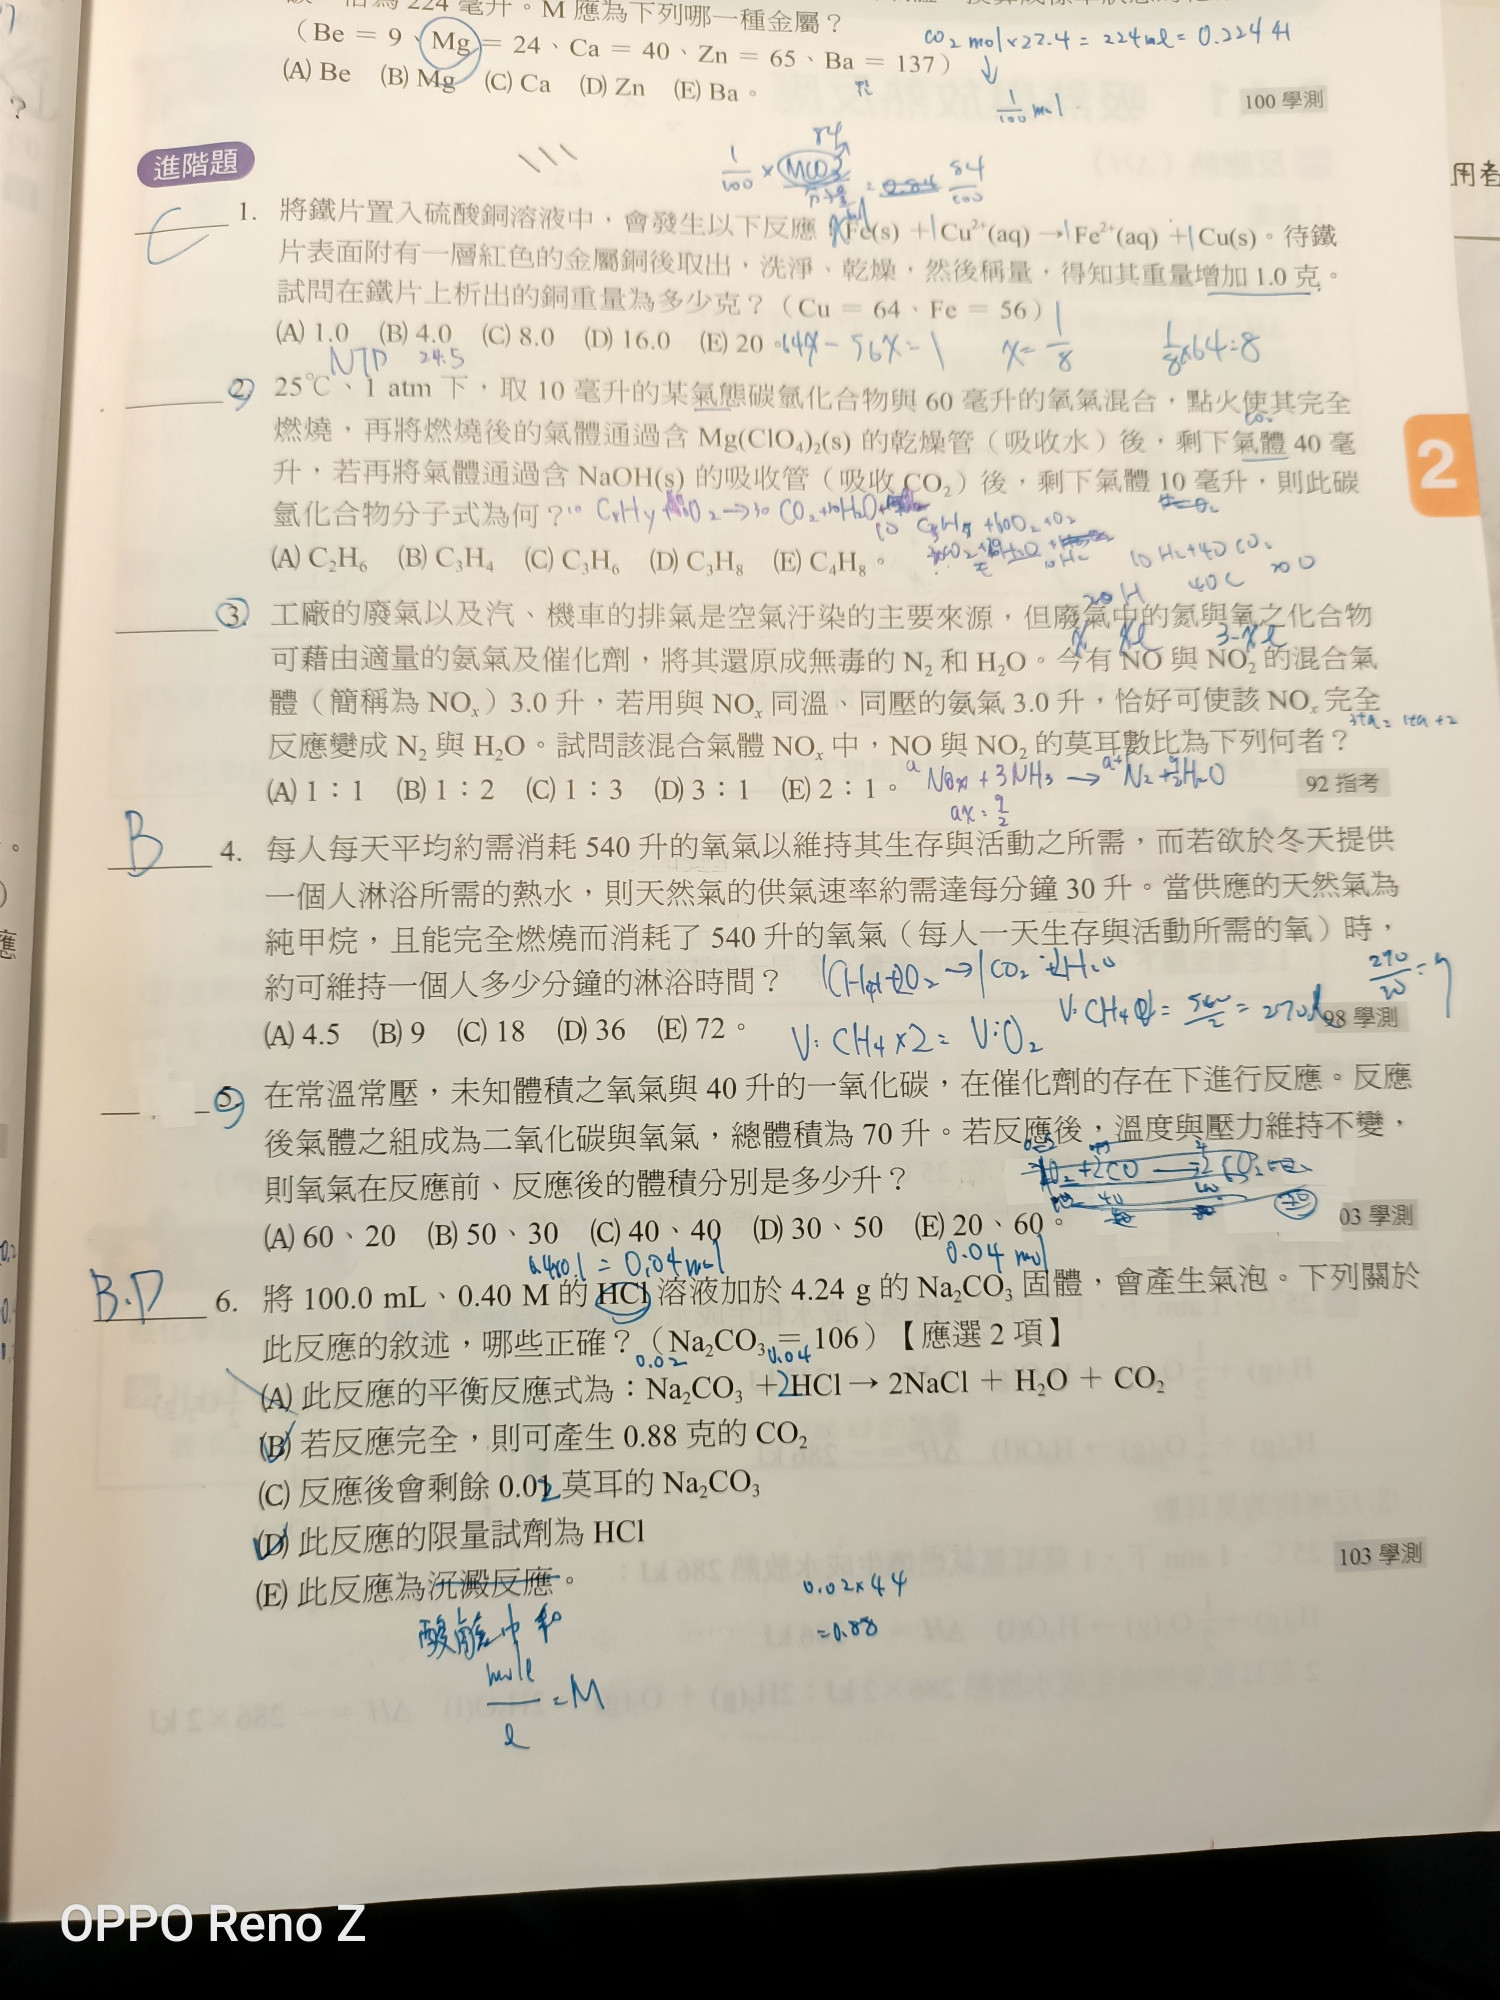 224 毫升。M 應為下列哪一種金屬？
（Be = 9、Mg = 24、Ca = 40、Zn = 65、Ba = 137）
(A) Be (B) Mg (C) Ca (D) Zn (E) Ba。
100 學測
CO₂ mol×22.4 = 224ml = 0.224升
1/100 mol
進階題
C
1. 將鐵片置入硫酸銅溶液中，會發生以下反應：Fe(s) + Cu²⁺(aq) → Fe²⁺(aq) + Cu(s)。待鐵
片表面附有一層紅色的金屬銅後取出，洗淨、乾燥，然後稱量，得知其重量增加 1.0 克。
試問在鐵片上析出的銅重量為多少克？（Cu = 64、Fe = 56）
(A) 1.0 (B) 4.0 (C) 8.0 (D) 16.0 (E) 20。
64x - 56x = 1 x = 1/8 1/8×64=8
NTP 24.5
2. 25℃、1 atm 下，取 10 毫升的某氣態碳氫化合物與 60 毫升的氧氣混合，點火使其完全
燃燒，再將燃燒後的氣體通過含 Mg(ClO₄)₂(s) 的乾燥管（吸收水）後，剩下氣體 40 毫
升，若再將氣體通過含 NaOH(s) 的吸收管（吸收 CO₂）後，剩下氣體 10 毫升，則此碳
氫化合物分子式為何？
(A) C₂H₆ (B) C₃H₄ (C) C₃H₆ (D) C₃H₈ (E) C₄H₈。
3. 工廠的廢氣以及汽、機車的排氣是空氣汙染的主要來源，但廢氣中的氮與氧之化合物
可藉由適量的氨氣及催化劑，將其還原成無毒的 N₂ 和 H₂O。今有 NO 與 NO₂ 的混合氣
體（簡稱為 NOₓ）3.0 升，若用與 NOₓ 同溫、同壓的氨氣 3.0 升，恰好可使該 NOₓ 完全
反應變成 N₂ 與 H₂O。試問該混合氣體 NOₓ 中，NO 與 NO₂ 的莫耳數比為下列何者？
(A) 1：1 (B) 1：2 (C) 1：3 (D) 3：1 (E) 2：1。
92 指考
B
4. 每人每天平均約需消耗 540 升的氧氣以維持其生存與活動之所需，而若欲於冬天提供
一個人淋浴所需的熱水，則天然氣的供氣速率約需達每分鐘 30 升。當供應的天然氣為
純甲烷，且能完全燃燒而消耗了 540 升的氧氣（每人一天生存與活動所需的氧）時，
約可維持一個人多少分鐘的淋浴時間？
(A) 4.5 (B) 9 (C) 18 (D) 36 (E) 72。
V: CH₄×2 = V: O₂
98 學測
5. 在常溫常壓，未知體積之氧氣與 40 升的一氧化碳，在催化劑的存在下進行反應。反應
後氣體之組成為二氧化碳與氧氣，總體積為 70 升。若反應後，溫度與壓力維持不變，
則氧氣在反應前、反應後的體積分別是多少升？
(A) 60、20 (B) 50、30 (C) 40、40 (D) 30、50 (E) 20、60。
03 學測
0.4×0.1 = 0.04 mol 0.04 mol
B.D
6. 將 100.0 mL、0.40 M 的 HCl 溶液加於 4.24 g 的 Na₂CO₃ 固體，會產生氣泡。下列關於
此反應的敘述，哪些正確？（Na₂CO₃ = 106）【應選 2 項】
0.02 0.04
(A) 此反應的平衡反應式為：Na₂CO₃ + 2HCl → 2NaCl + H₂O + CO₂
(B) 若反應完全，則可產生 0.88 克的 CO₂
(C) 反應後會剩餘 0.02 莫耳的 Na₂CO₃
(D) 此反應的限量試劑為 HCl
(E) 此反應為沉澱反應。
103 學測
0.02×44
=0.88
酸鹼中和
mole/l = M
2
OPPO Reno Z